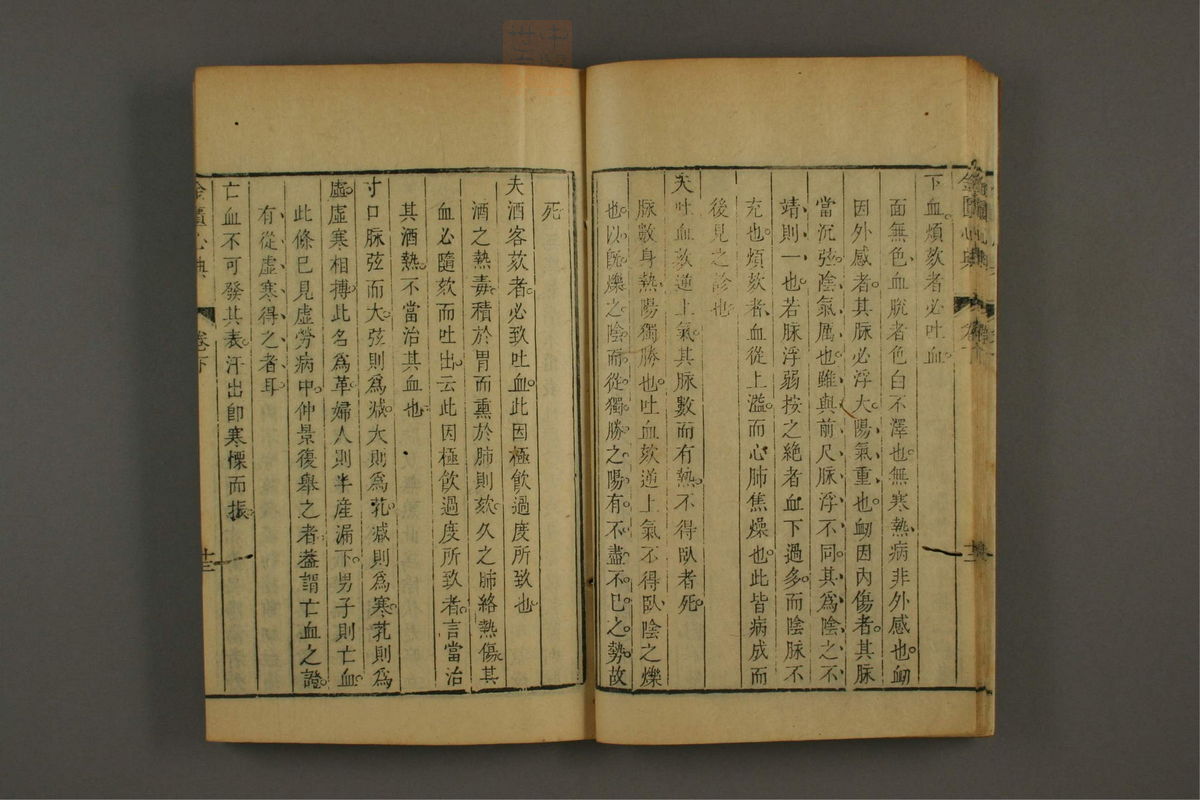 下血煩欬者必吐血
面無色血脫者色白不澤也無寒熱病非外感也衂
因外感者其脉必浮大陽氣重也衂因內傷者其脉
當沉弦陰氣厲也雖與前尺脉浮不同其為陰之不
靖則一也若脉浮弱按之絕者血下過多而陰脉不
充也煩欬者血從上溢而心肺焦燥也此皆病成而
後見之診也
夫吐血欬逆上氣其脉數而有熱不得臥者死
脉數身熱陽獨勝也吐血欬逆上氣不得臥陰之爍
也以既爍之陰而從獨勝之陽有不盡不已之勢故
死
夫酒客欬者必致吐血此因極飲過度所致也
酒之熱毒積於胃而熏於肺則欬久之肺絡熱傷其
血必隨欬而吐出云此因極飲過度所致者言當治
其酒熱不當治其血也
寸口脉弦而大弦則為減大則為芤減則為寒芤則為
虛虛寒相搏此名為革婦人則半產漏下男子則亡血
此條已見虛勞病中仲景復舉之者葢謂亡血之證
有從虛寒得之者耳
亡血不可發其表汗出卽寒慄而振
金匱心典
卷下